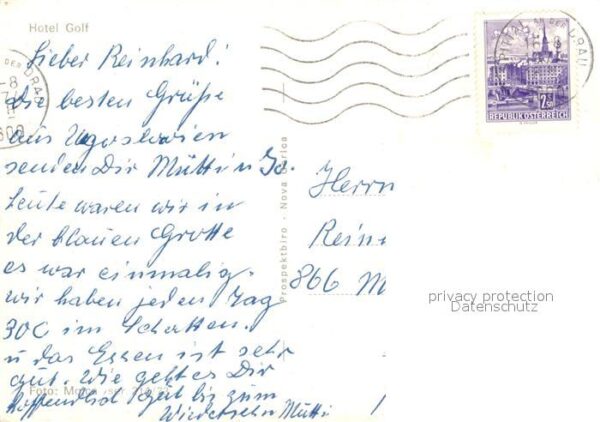 Hotel Golf
Lieber Reinhard!
die besten Grüße
aus Ugoslavien
senden Dir Mutti u
Heute waren wir in
der blauen Grotte
es war einmalig.
wir haben jeden Tag
30C im Schatten.
u das Essen ist sehr
gut. Wie geht es Dir
hoffendlich gut bis zum
Wiedersehn Mutti
Foto:
Prospektbiro - Nova Gorica
Herrn
Rein
866 M
DER DRAU
REPUBLIK ÖSTERREICH
privacy protection
Datenschutz